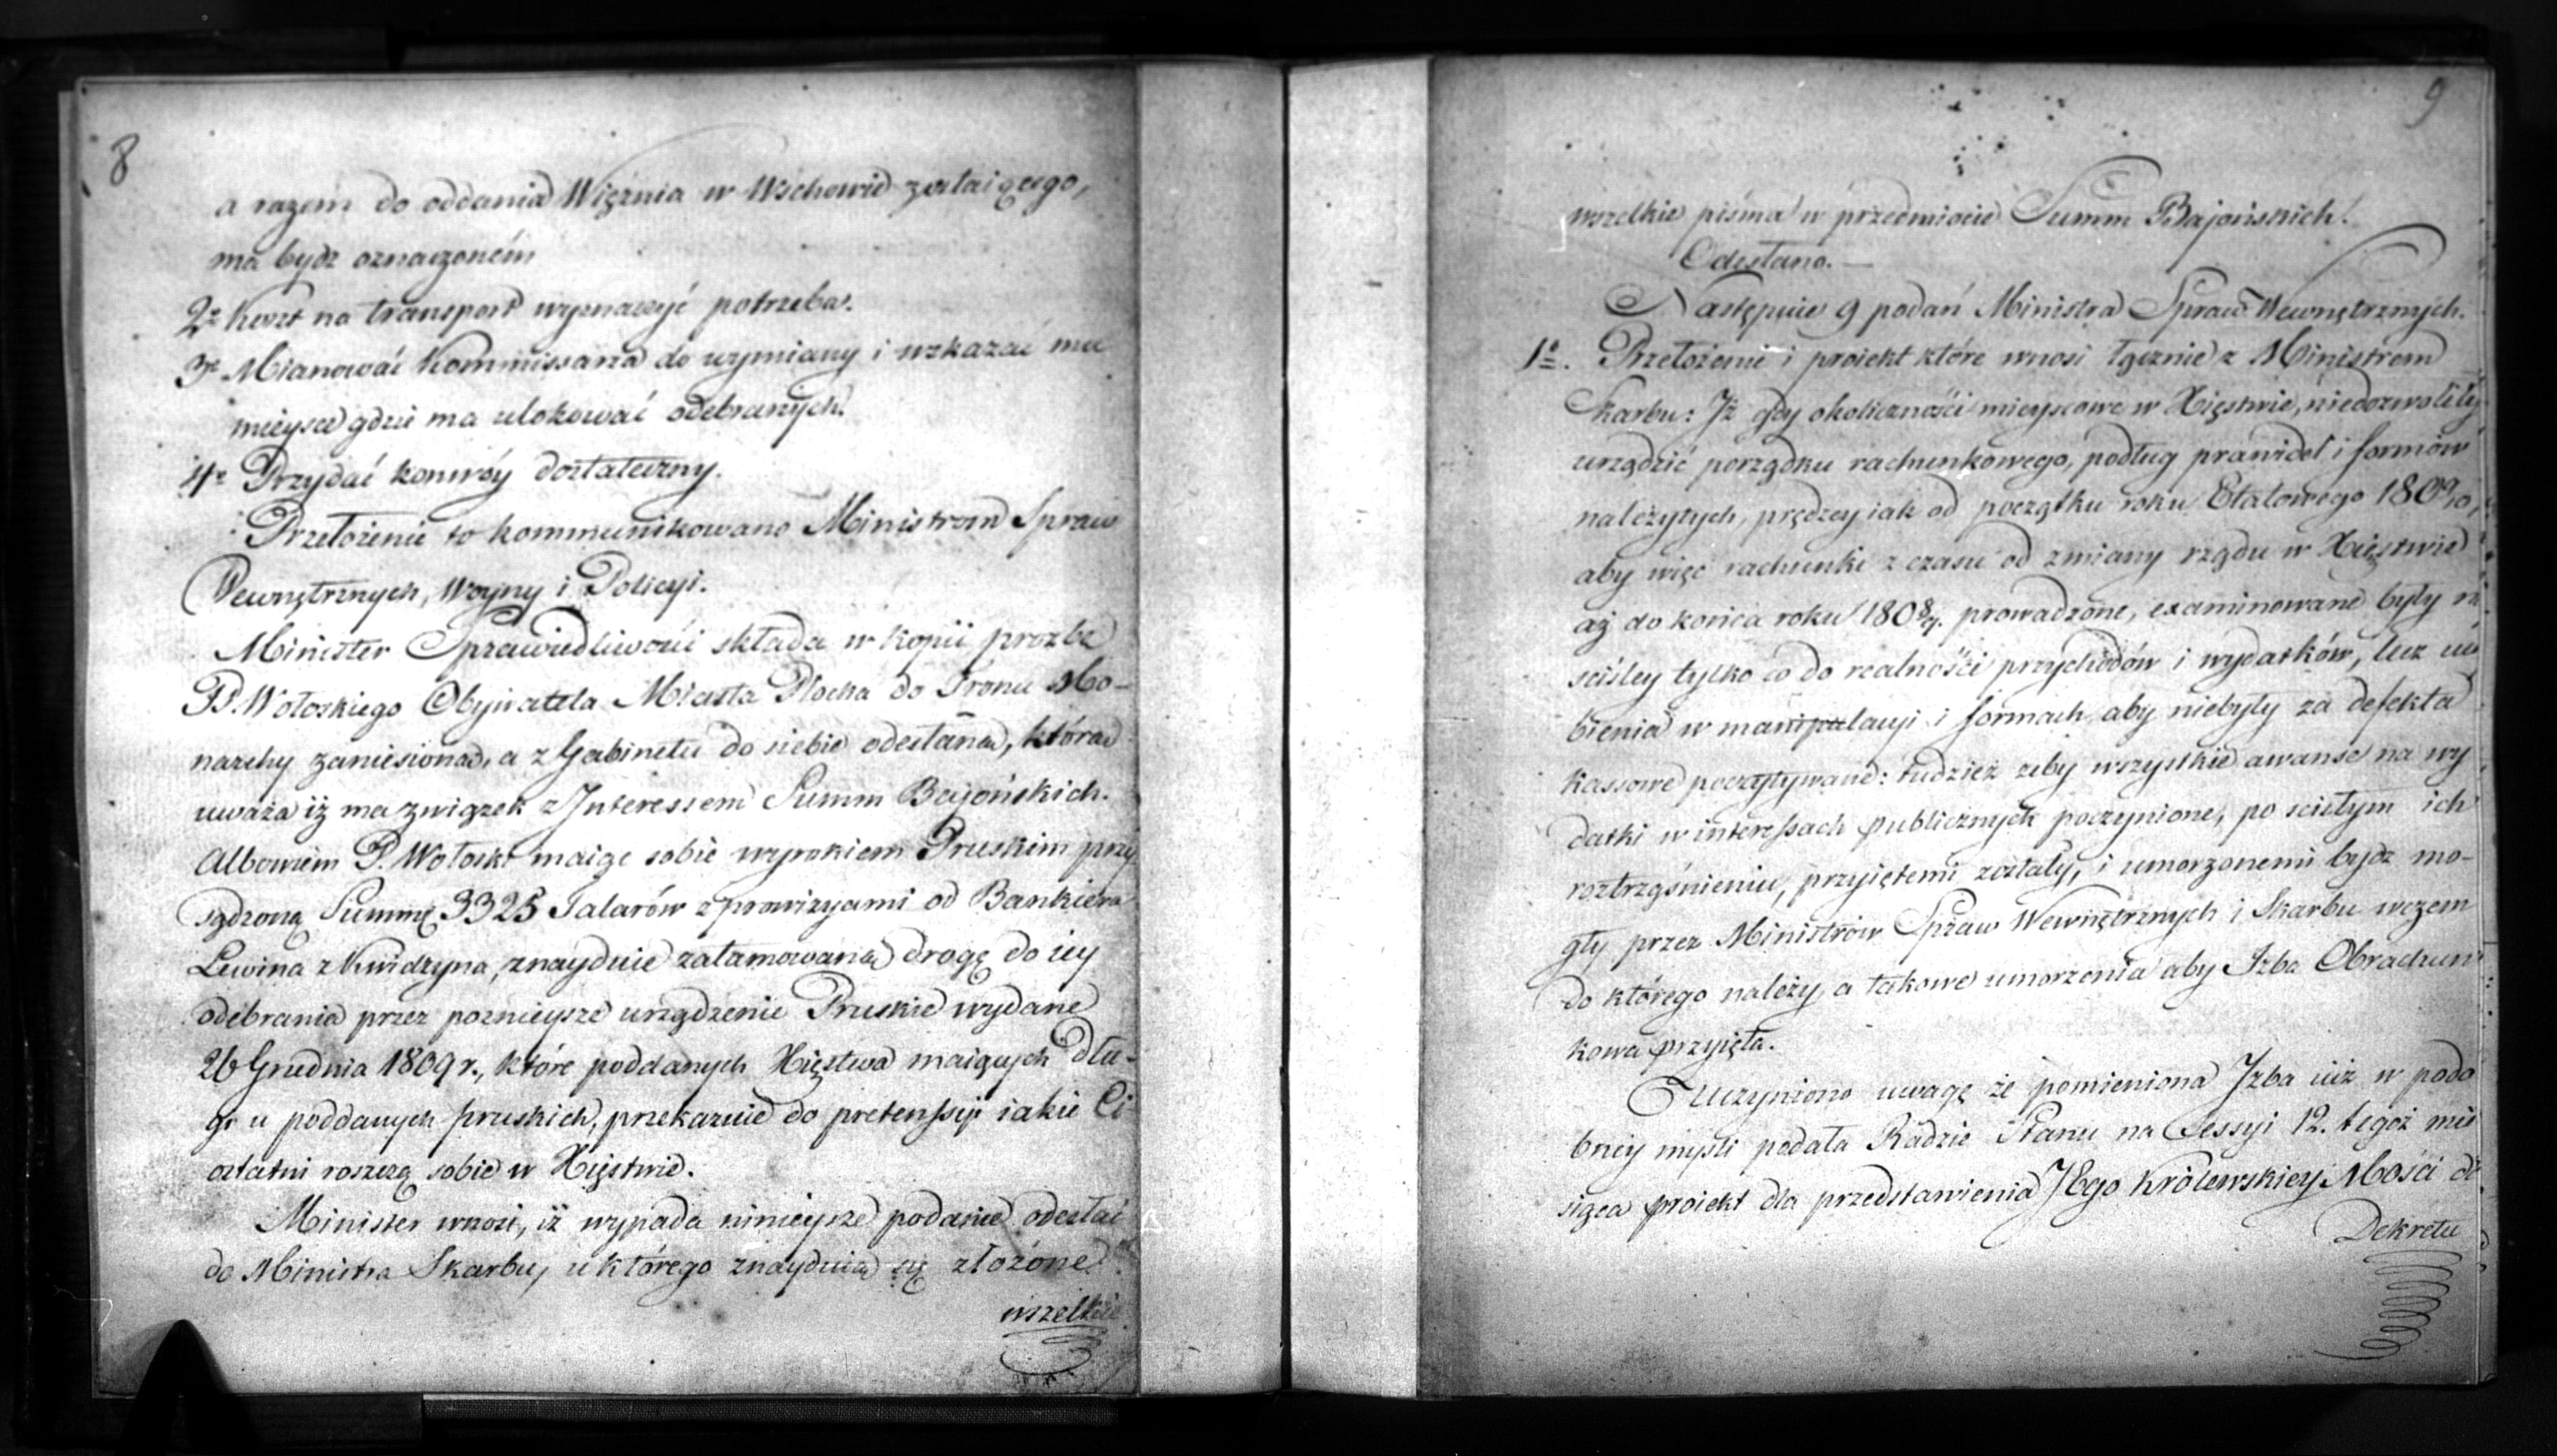 8
a razem do oddania Więznia w Wschowie zostaiącego,
ma bydz oznaczoném
2º Koszt na transport wyznaczyć potrzeba.
3º Mianować Kommissarza do wymiany i wskazać mu
mieysce gdzie ma ulokować odebranych.
4º Przydać konwóy dostateczny.
Przełożenie to kommunikowano Ministrom Spraw
Wewnętrznych, Woyny i Policyi.
Minister Sprawiedliwości składa w kopii prozbę
P. Wołoskiego Obywatela Miasta Płocka do Tronu Mo-
narchy zaniesioną, a z Gabinetu do siebie odesłaną, która
uważa iż ma związek z Interessem Summ Bajońskich.
Albowiem P. Wołoski maiąc sobie wyrokiem Pruskim przy
sądzoną Summę 3325 Talarów z prowizyami od Bankiera
Lewina z Kwidzyna, znayduie zatamowaną drogę do iey
odebrania przez poznieysze urządzenie Pruskie wydane
26 Grudnia 1809 r., które poddanych Xięstwa maiących dłu-
gi u poddanych pruskich, przekazuie do pretenssyi iakie Ci
ostatni roszczą sobie w Xięstwie.
Minister wnosi, iż wypada ninieysze podanie odesłać
do Ministra Skarbu, u którego znayduią się złożone
wszelkie
9
wszelkie pisma w przedmiocie Summ Bajońskich.
Odesłano. —
Następuie 9 podań Ministra Spraw Wewnętrznych.
1º. Przełożenie i proiekt które wnosi łącznie z Ministrem
Skarbu: Iż gdy okoliczności mieyscowe w Xięstwie, niedozwoliły
urządzić porządku rachunkowego, podług prawideł i formów
należytych, prędzey iak od początku roku Etatowego 1809/10,
aby więc rachunki z czasu od zmiany rządu w Xięstwie
aż do końca roku 1808/9. prowadzone, examinowane były
ściśley tylko co do realności przychodów i wydatków, lecz
bienia w manipulacyi i formach aby niebyły za defekta
kassowe poczytywane: tudzież żeby wszystkie awanse na wy
datki w interessach publicznych poczynione, po scisłym ich
roztrząśnieniu, przyiętemi zostały, i umorzonemi bydz mo-
gły przez Ministrów Spraw Wewnętrznych i Skarbu wczem
do którego należy, a takowe umorzenia aby Izba Obrachun
kowa przyięła.
Uczyniono uwagę że pomieniona Izba iuż w podo
bney myśli podała Radzie Stanu na Sessyi 12. tegoż mie
siąca proiekt dla przedstawienia JEgo Królewskiey Mości do
Dekretu